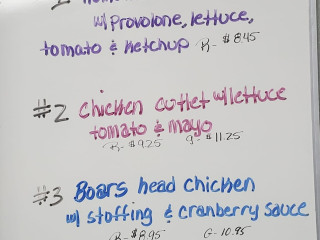 w/ Provolone, lettuce,
tomato & Ketchup R- $8.45
#2 Chicken cutlet w/lettuce
tomato & mayo
R- $9.25 g- $11.25
#3 Boars head chicken
w/ stoffing & cranberry sauce
R- $8.95 G- 10.95